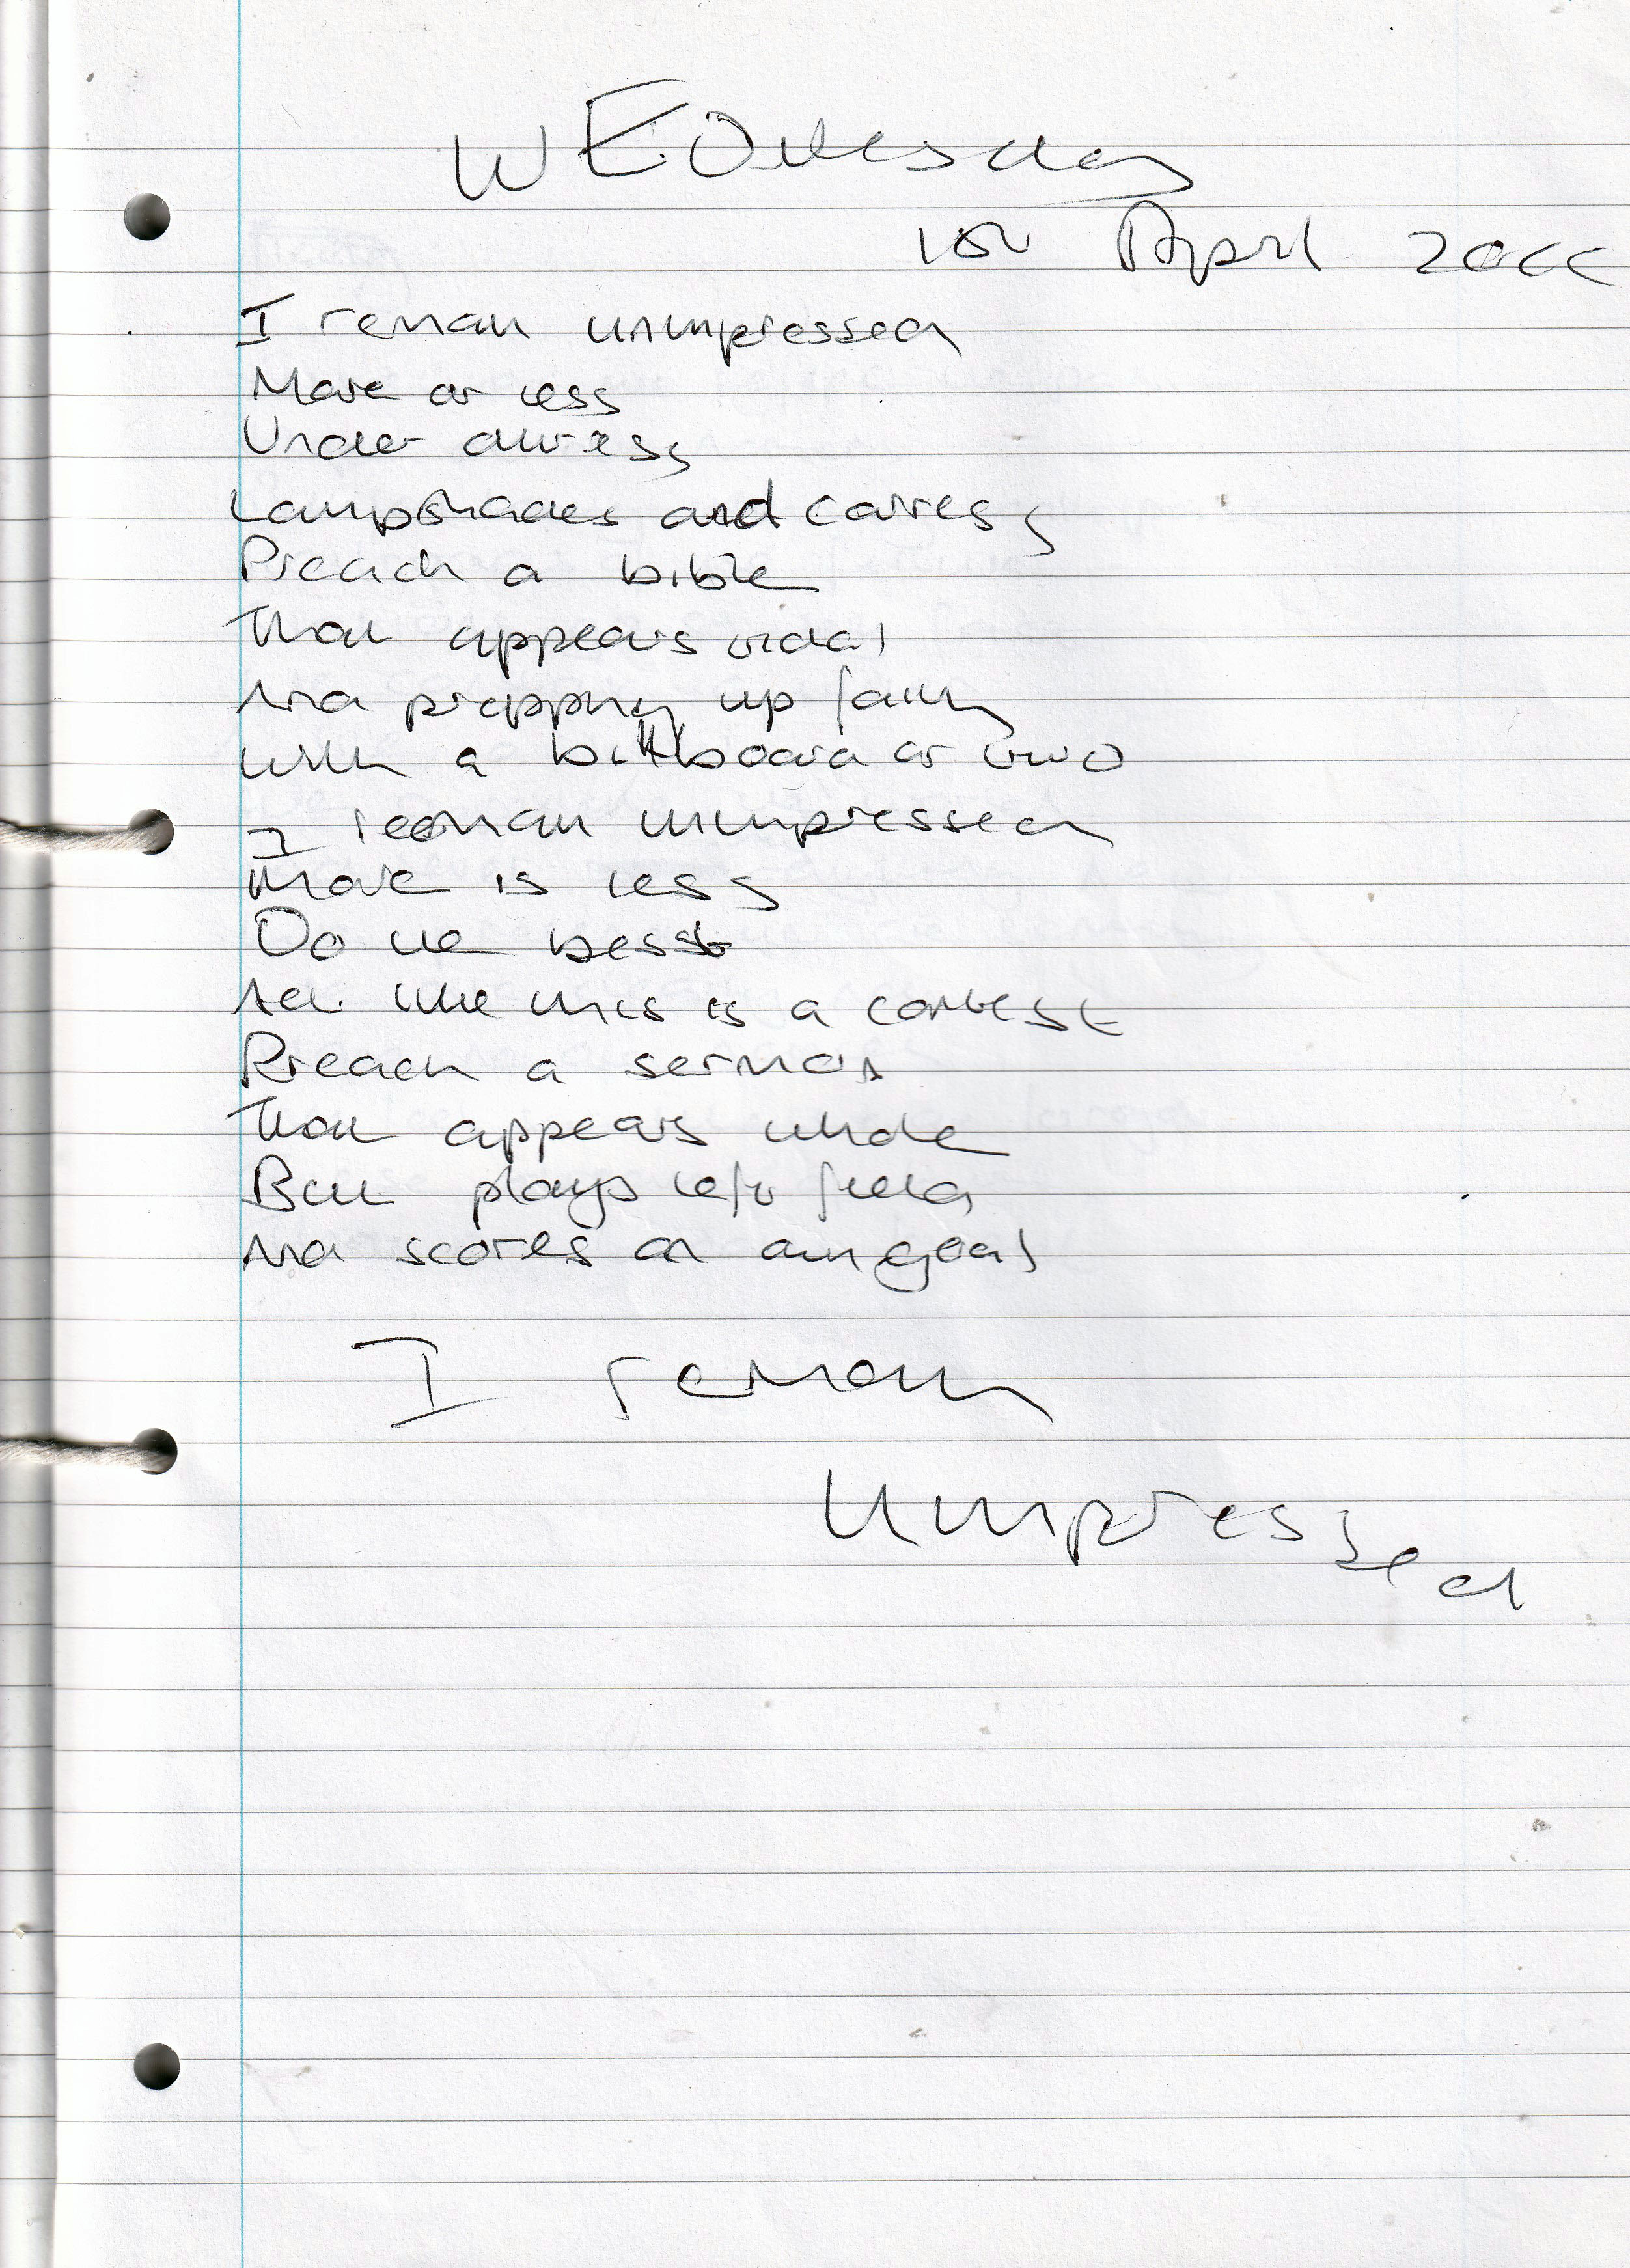 WEDnesday
1st April 20
I remain unimpressed
More or less
Under duress
Lampshades and caress
Preach a bible
That appears tidal
And propping up faith
With a billboard or two
I remain unimpressed
More is less
Do the best
Act like this is a contest
Preach a sermon
That appears whole
But plays left field
And scores an own goal
I remain
Unimpressed